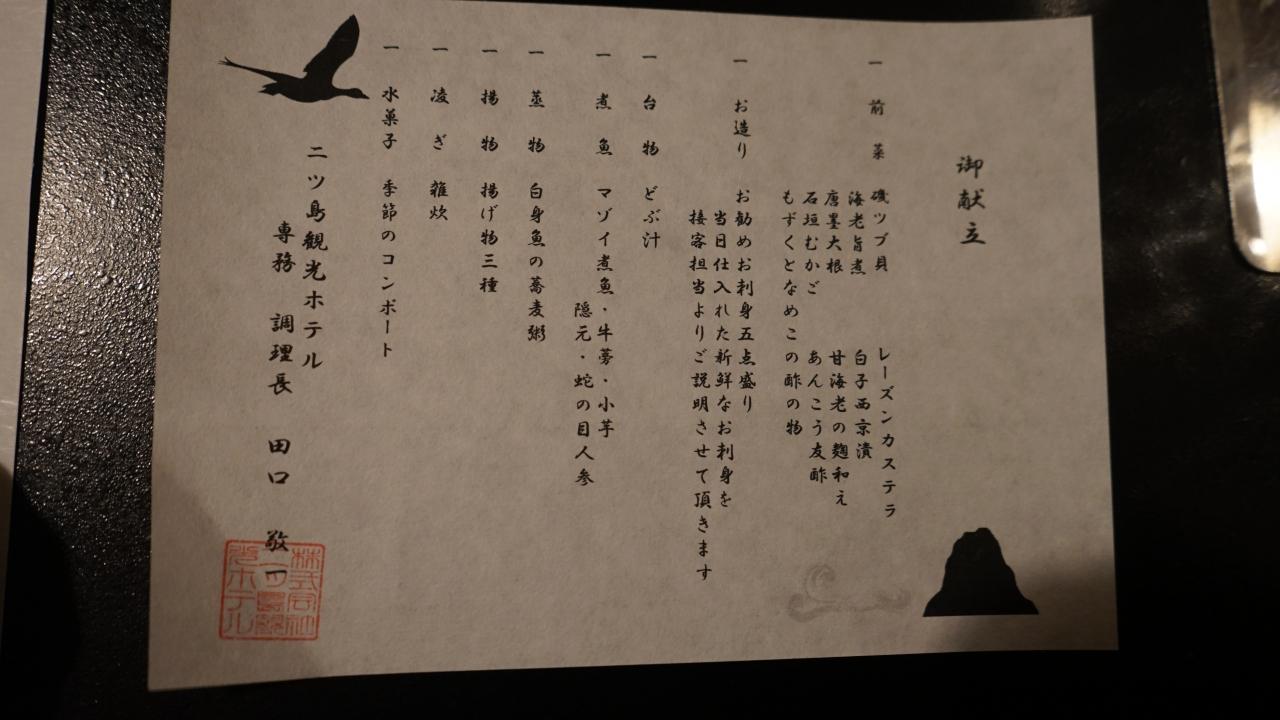 御献立
一 前菜 磯ツブ貝 レーズンカステラ
海老旨煮 白子西京漬
唐墨大根 甘海老の麹和え
石垣むかご あんこう友酢
もずくとなめこの酢の物
一 お造り お勧めお刺身五点盛り
当日仕入れた新鮮なお刺身を
接客担当よりご説明させて頂きます
一 台物 どぶ汁
一 煮魚 マゾイ煮魚・牛蒡・小芋
隠元・蛇の目人参
一 蒸物 白身魚の蕎麦粥
一 揚物 揚げ物三種
一 凌ぎ 雑炊
一 水菓子 季節のコンポート
二ツ島観光ホテル
専務 調理長 田口 敬一
株式会社
二ツ島観
光ホテル